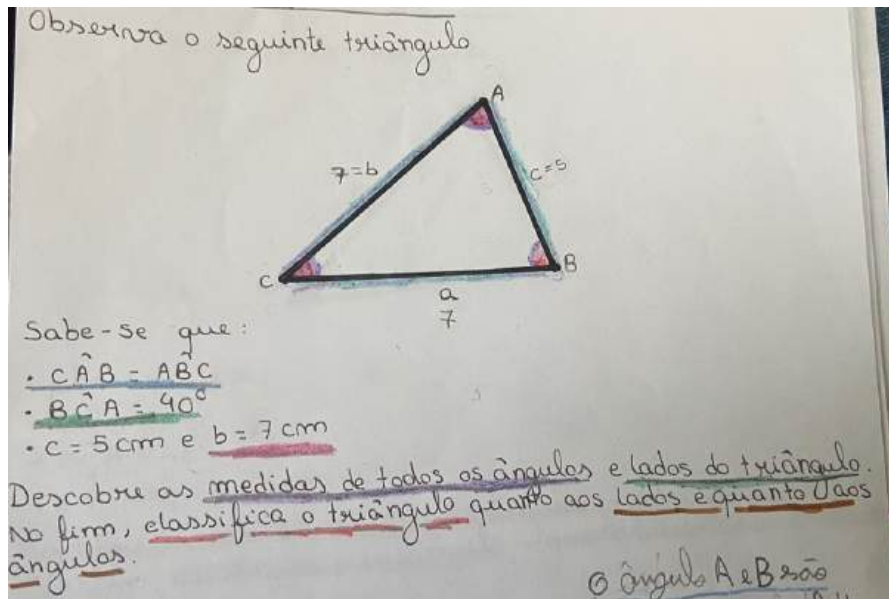 Observa o seguinte triângulo
A
7=b
c=5
C
B
a
7
Sabe-se que:
• CÂB = AB̂C
• BĈA = 40°
• c = 5 cm e b = 7 cm
Descobre as medidas de todos os ângulos e lados do triângulo.
No fim, classifica o triângulo quanto aos lados e quanto aos
ângulos.
O ângulo A e B são